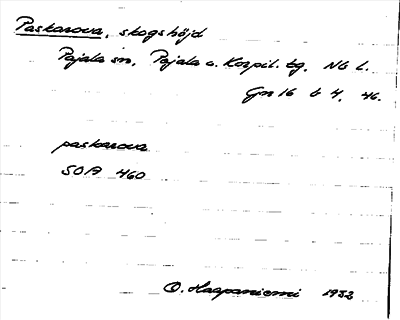 Paskarova, skogshöjd
Pajala sn, Pajala o. Korpil. tg. Nb l.
Gn 16 b 4, 46.
paskarova
SOA 460
O. Haapaniemi 1932